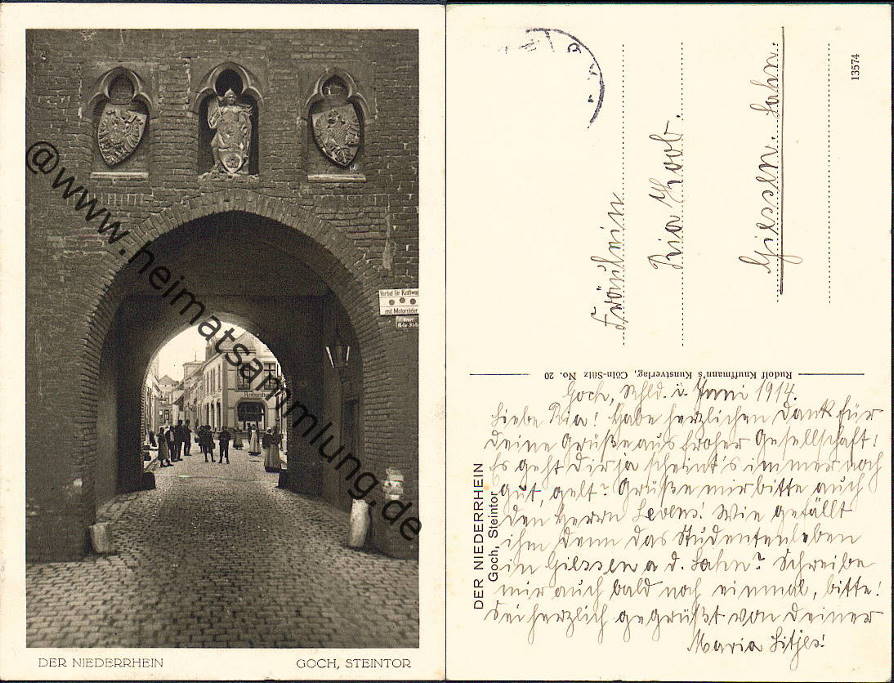 @www.heimatsammlung.de
DER NIEDERRHEIN
GOCH, STEINTOR
13574
Fräulein
Ria
Giessen. Lahn.
Rudolf Knuffmann's Kunstverlag, Cöln-Sülz No. 20
DER NIEDERRHEIN
Goch, Steintor
Goch, Juni 1914.
Liebe Ria! Habe herzlichen Dank für
deine Grüße aus froher Gesellschaft!
Es geht dir ja scheint's immer noch
gut, gelt? Grüße mir bitte auch
den Herrn Wie gefällt
ihm denn das Studentenleben
in Giessen a d. Lahn? Schreibe
mir auch bald noch einmal, bitte!
Sei herzlich gegrüßt von deiner
Maria